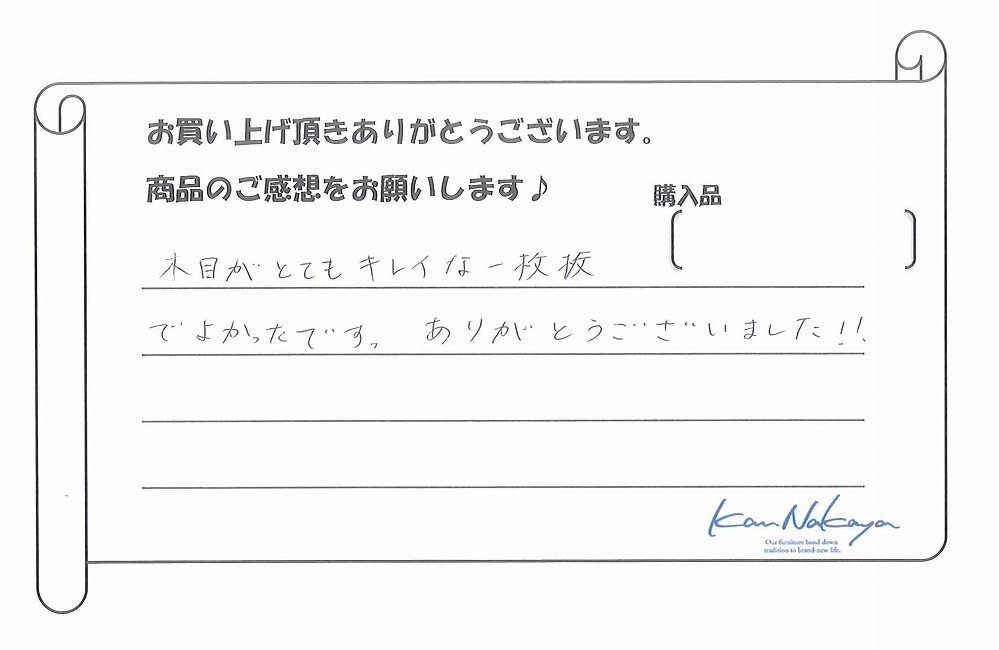 お買い上げ頂きありがとうございます。
商品のご感想をお願いします♪
購入品
木目がとてもキレイな一枚板
でよかったです。 ありがとうございました!!
Kan Nakaya
Our furniture hand down
tradition to brand-new life.